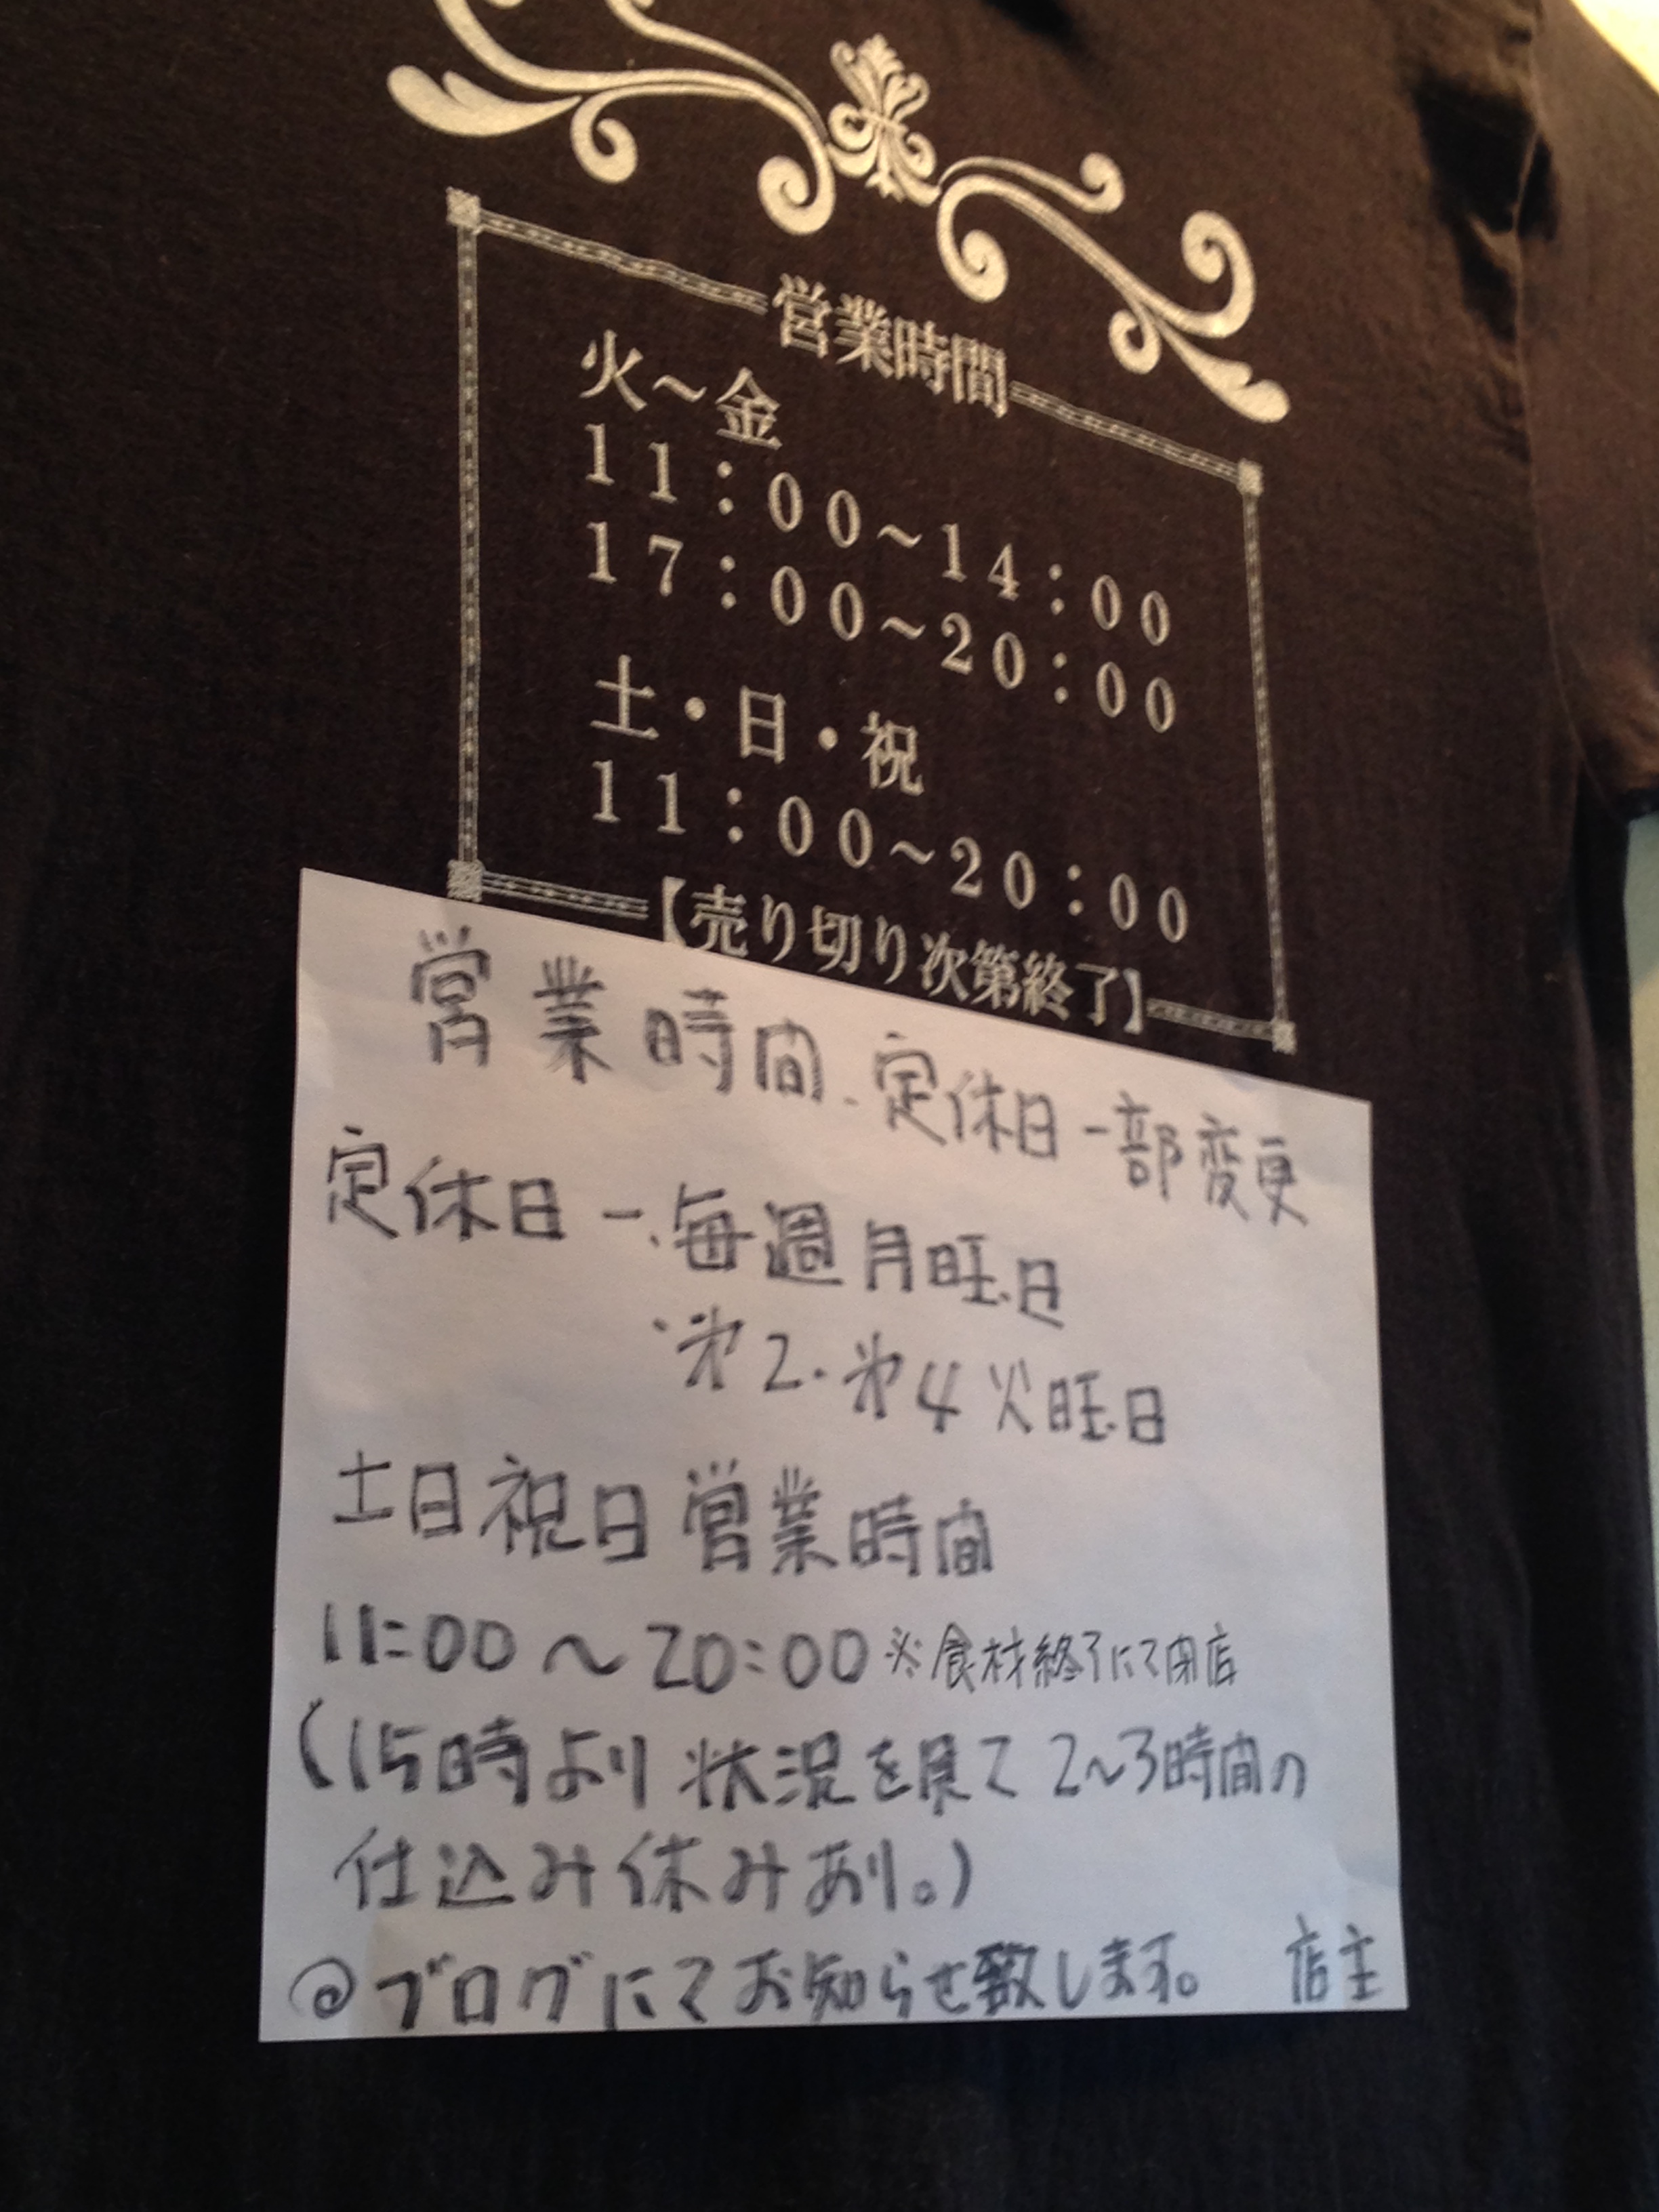 営業時間
火～金
11:00～14:00
17:00～20:00
土・日・祝
11:00～20:00
【売り切り次第終了】
営業時間、定休日一部変更
定休日－・毎週月曜日
・第2・第4火曜日
土日祝日営業時間
11:00～20:00※食材終了にて閉店
(15時より状況を見て2～3時間の
仕込み休みあり。)
@ブログにてお知らせ致します。 店主